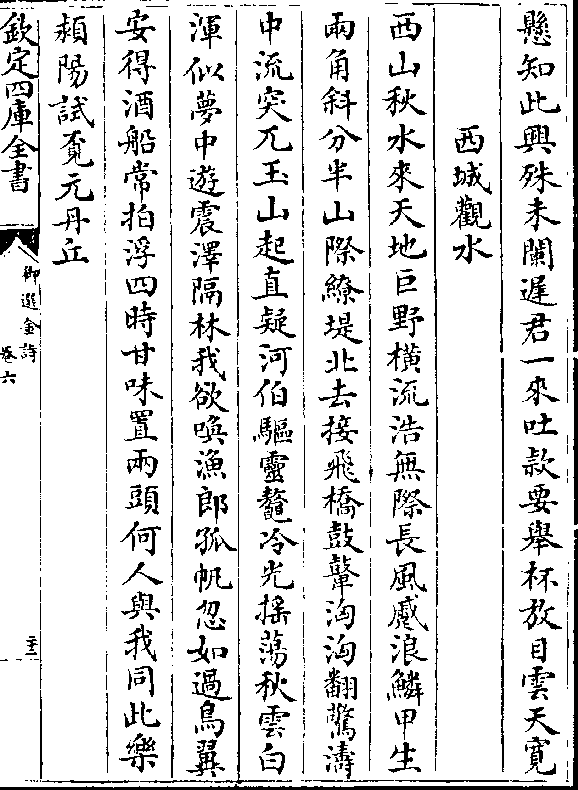 懸知此興殊未闌遲君一來吐款要舉杯放目雲天寛
西城觀水
西山秋水來天地巨野橫流浩無際長風蹙浪鱗甲生
兩角斜分半山際繚堤北去接飛橋鼓鼙洶洶翻驚濤
中流突兀玉山起直疑河伯驅靈鼇冷光揺蕩秋雲白
渾似夢中遊震澤隔林我欲喚漁郎孤帆忽如過鳥翼
安得酒船常拍浮四時甘味置兩頭何人與我同此樂
潁陽試覔元丹丘
欽定四庫全書
御選金詩
卷六